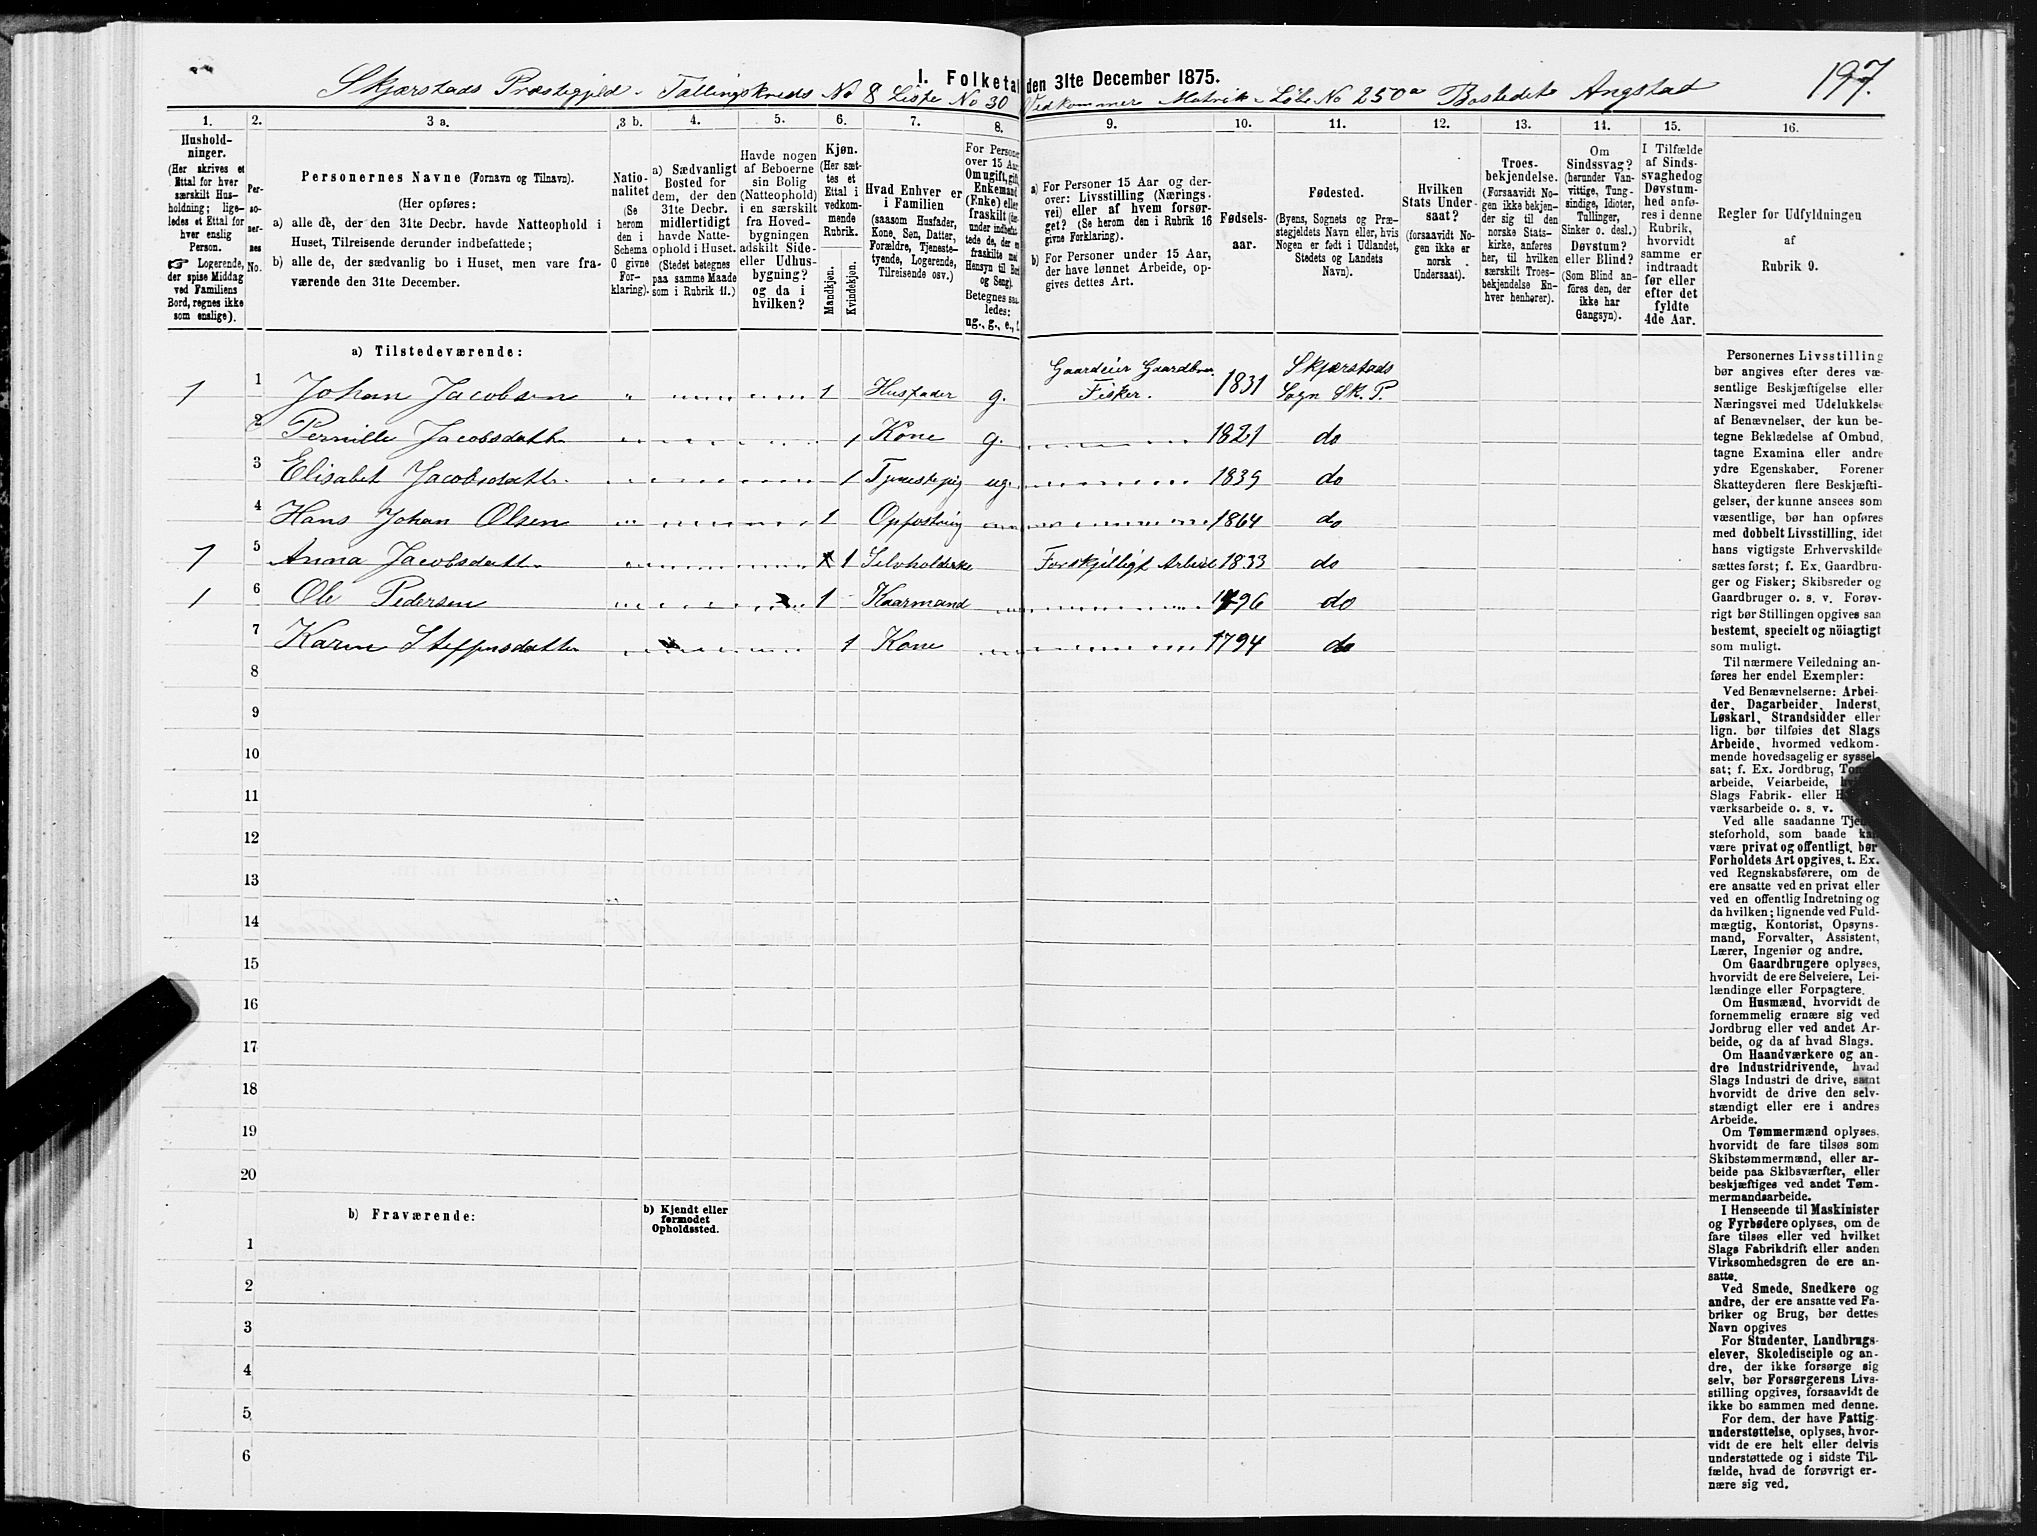 I. Folketal den 31te December 1875.
197.
Skjærstads Præstegjeld - Tællingskreds No 8 Liste No 30 Vedkommer Matrik - Løbe No 250a Bostedet Angstad
1. 2. 3 a. 3 b. 4. 5. 6. 7. 8. 9. 10. 11. 12. 13. 14. 15. 16.
Hushold-
ninger.
(Her skrives et
Ettal for hver
særskilt Hus-
holdning; lige-
ledes et Ettal for
hver enslig
Person.
☞ Logerende,
der spise Middag
ved Familiens
Bord, regnes ikke
som enslige).
Per-
so-
ner-
nes
No.
Personernes Navne (Fornavn og Tilnavn).
(Her opføres:
a) alle de, der den 31te Decbr. havde Natteophold i
Huset, Tilreisende derunder indbefattede;
b) alle de, der sædvanlig bo i Huset, men vare fra-
værende den 31te December.
Natio-
nalitet
(Se
herom
den i
Schema
O givne
For-
klaring).
a) Sædvanligt
Bosted for
dem, der den
31te Decbr.
midlertidigt
havde Natte-
ophold i Huset.
(Stedet betegnes
paa samme Maade
som i Rubrik 11.)
Havde nogen
af Beboerne
sin Bolig
(Natteophold)
i en særskilt
fra Hoved-
bygningen
adskilt Side-
eller Udhus-
bygning?
og da i
hvilken?
Kjøn.
(Her sæt-
tes et
Ettal i
vedkom-
mende
Rubrik.
Mandkjøn.
Kvindekjøn.
Hvad Enhver er
i Familien
(saasom Husfader,
Kone, Søn, Datter,
Forældre, Tjeneste-
tyende, Logerende,
Tilreisende osv.)
For Personer
over 15 Aar:
Om ugift, gift,
Enkemand
(Enke) eller
fraskilt
Betegnes saa-
ledes:
ug., g., e., f.
a) For Personer 15 Aar og der-
over: Livsstilling (Nærings-
vei) eller af hvem forsør-
get? (Se herom den i Rubrik 16
givne Forklaring).
b) For Personer under 15 Aar,
der have lønnet Arbeide, op-
gives dettes Art.
Fødsels-
aar.
Fødested.
(Byens, Sognets og Præ-
stegjeldets Navn eller, hvis
Nogen er født i Udlandet,
Stedets og Landets
Navn).
Hvilken
Stats Under-
saat?
(forsaavidt No-
gen ikke er
norsk
Undersaat).
Troes-
bekjendelse.
(Forsaavidt No-
gen ikke bekjen-
der sig til den
norske Stats-
kirke, anføres
her, til hvilken
særskilt Troes-
bekjendelse En-
hver henhører).
Om
Sindssvag?
(herunder Van-
vittige, Tung-
sindige, Idioter,
Tullinger,
Sinker o. desl.)
Døvstum?
eller Blind?
(Som Blind an-
føres den, der
ikke har
Gangsyn).
I Tilfælde
af Sinds-
svaghed og
Døvstum-
hed anfø-
res i denne
Rubrik,
hvorvidt
samme er
indtraadt
før eller
efter det
fyldte
4de Aar.
Regler for Udfyldningen
af
Rubrik 9.
a) Tilstedeværende:
1 1 Johan Jacobsen 1 Husfader g. Gaardeier Gaardbr. Fisker. 1831 Skjærstads Sogn Sk. P.
2 Pernille Jacobsdatt 1 Kone g. 1821 do
3 Elisabet Jacobsdatt 1 Tjenestepig ug. 1839 do
4 Hans Johan Olsen 1 Opfostring 1864 do
1 5 Anna Jacobsdatt 1 Forskjelligt Arbeid 1833 do
1 6 Ole Pedersen 1 Kaarmand 1796 do
7 Karen Steffensdatter 1 Kone 1794 do
8
9
10
11
12
13
14
15
16
17
18
19
20
b) Fraværende:
b) Kjendt eller
formodet
Opholdssted.
1
2
3
4
5
6
Personernes Livsstilling
bør angives efter deres væ-
sentlige Beskjæftigelse eller
Næringsvei med Udelukkelse
af Benævnelser, der kun be-
tegne Beklædelse af Ombud,
tagne Examina eller andre
ydre Egenskaber. Forener
Skatteyderen flere Beskjæfti-
gelser, der kunne ansees som
væsentlige, bør han opføres
med dobbelt Livsstilling, idet
hans vigtigste Erhvervskilde
sættes først; f. Ex. Gaardbru-
ger og Fisker; Skibsreder og
Gaardbruger o. s. v. Forøv-
rigt bør Stillingen opgives saa
bestemt, specielt og nöiagtigt
som muligt.
Til nærmere Veiledning an-
føres her endel Exempler:
Ved Benævnelserne: Arbei-
der, Dagarbeider, Inderst,
Løskarl, Strandsidder eller
lign. bør tilføies det Slags
Arbeide, hvormed vedkom-
mende hovedsagelig er syssel-
sat; f. Ex. Jordbrug,
arbeide, Veiarbeide,
Slags Fabrik- eller
værksarbeide o. s. v.
Ved alle saadanne
steforhold, som baade
være privat og offentligt, bør
Forholdets Art opgives, t. Ex.
ved Regnskabsførere, om de
ere ansatte ved en privat eller
ved en offentlig Indretning og
da hvilken; lignende ved Fuld-
mægtig, Kontorist, Opsyns-
mand, Forvalter, Assistent,
Lærer, Ingeniør og andre.
Om Gaardbrugere oplyses,
hvorvidt de ere Selveiere, Lei-
lændinge eller Forpagtere.
Om Husmænd, hvorvidt de
fornemmelig ernære sig ved
Jordbrug eller ved andet Ar-
beide, og da af hvad Slags.
Om Haandværkere og an-
dre Industridrivende, hvad
Slags Industri de drive, samt
hvorvidt de drive den selv-
stændigt eller ere i andres
Arbeide.
Om Tømmermænd oplyses,
hvorvidt de fare tilsøs som
Skibstømmermænd, eller ar-
beide paa Skibsværfter, eller
beskjæftiges ved andet Tøm-
mermandsarbeide.
I Henseende til Maskinister
og Fyrbødere oplyses, om de
fare tilsøs eller ved hvilket
Slags Fabrikdrift eller anden
Virksomhedsgren de ere an-
satte.
Ved Smede, Snedkere og
andre, der ere ansatte ved Fa-
briker og Brug, bør dettes
Navn opgives
For Studenter, Landbrugs-
elever, Skoledisciple og an-
dre, der ikke forsørge sig
selv, bør Forsørgerens Livs-
stilling opgives, forsaavidt de
ikke bo sammen med denne.
For dem, der have Fattig-
understøttelse, oplyses, hvor-
vidt de ere helt eller delvis
understøttede og i sidste Til-
fælde, hvad de forøvrigt er-
nære sig ved.